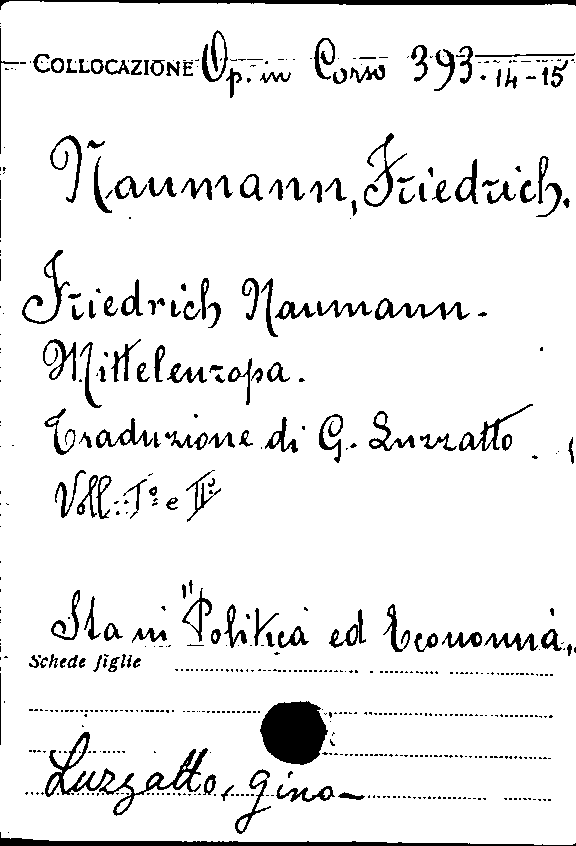 COLLOCAZIONE Op. in Corso 393. 14-15
Naumann, Friedrich.
Friedrich Naumann.
Mitteleuropa.
Traduzione di G. Luzzatto.
Voll: I° e II°
Sta in "Politica ed Economia„
Schede figlie
Luzzatto, Gino